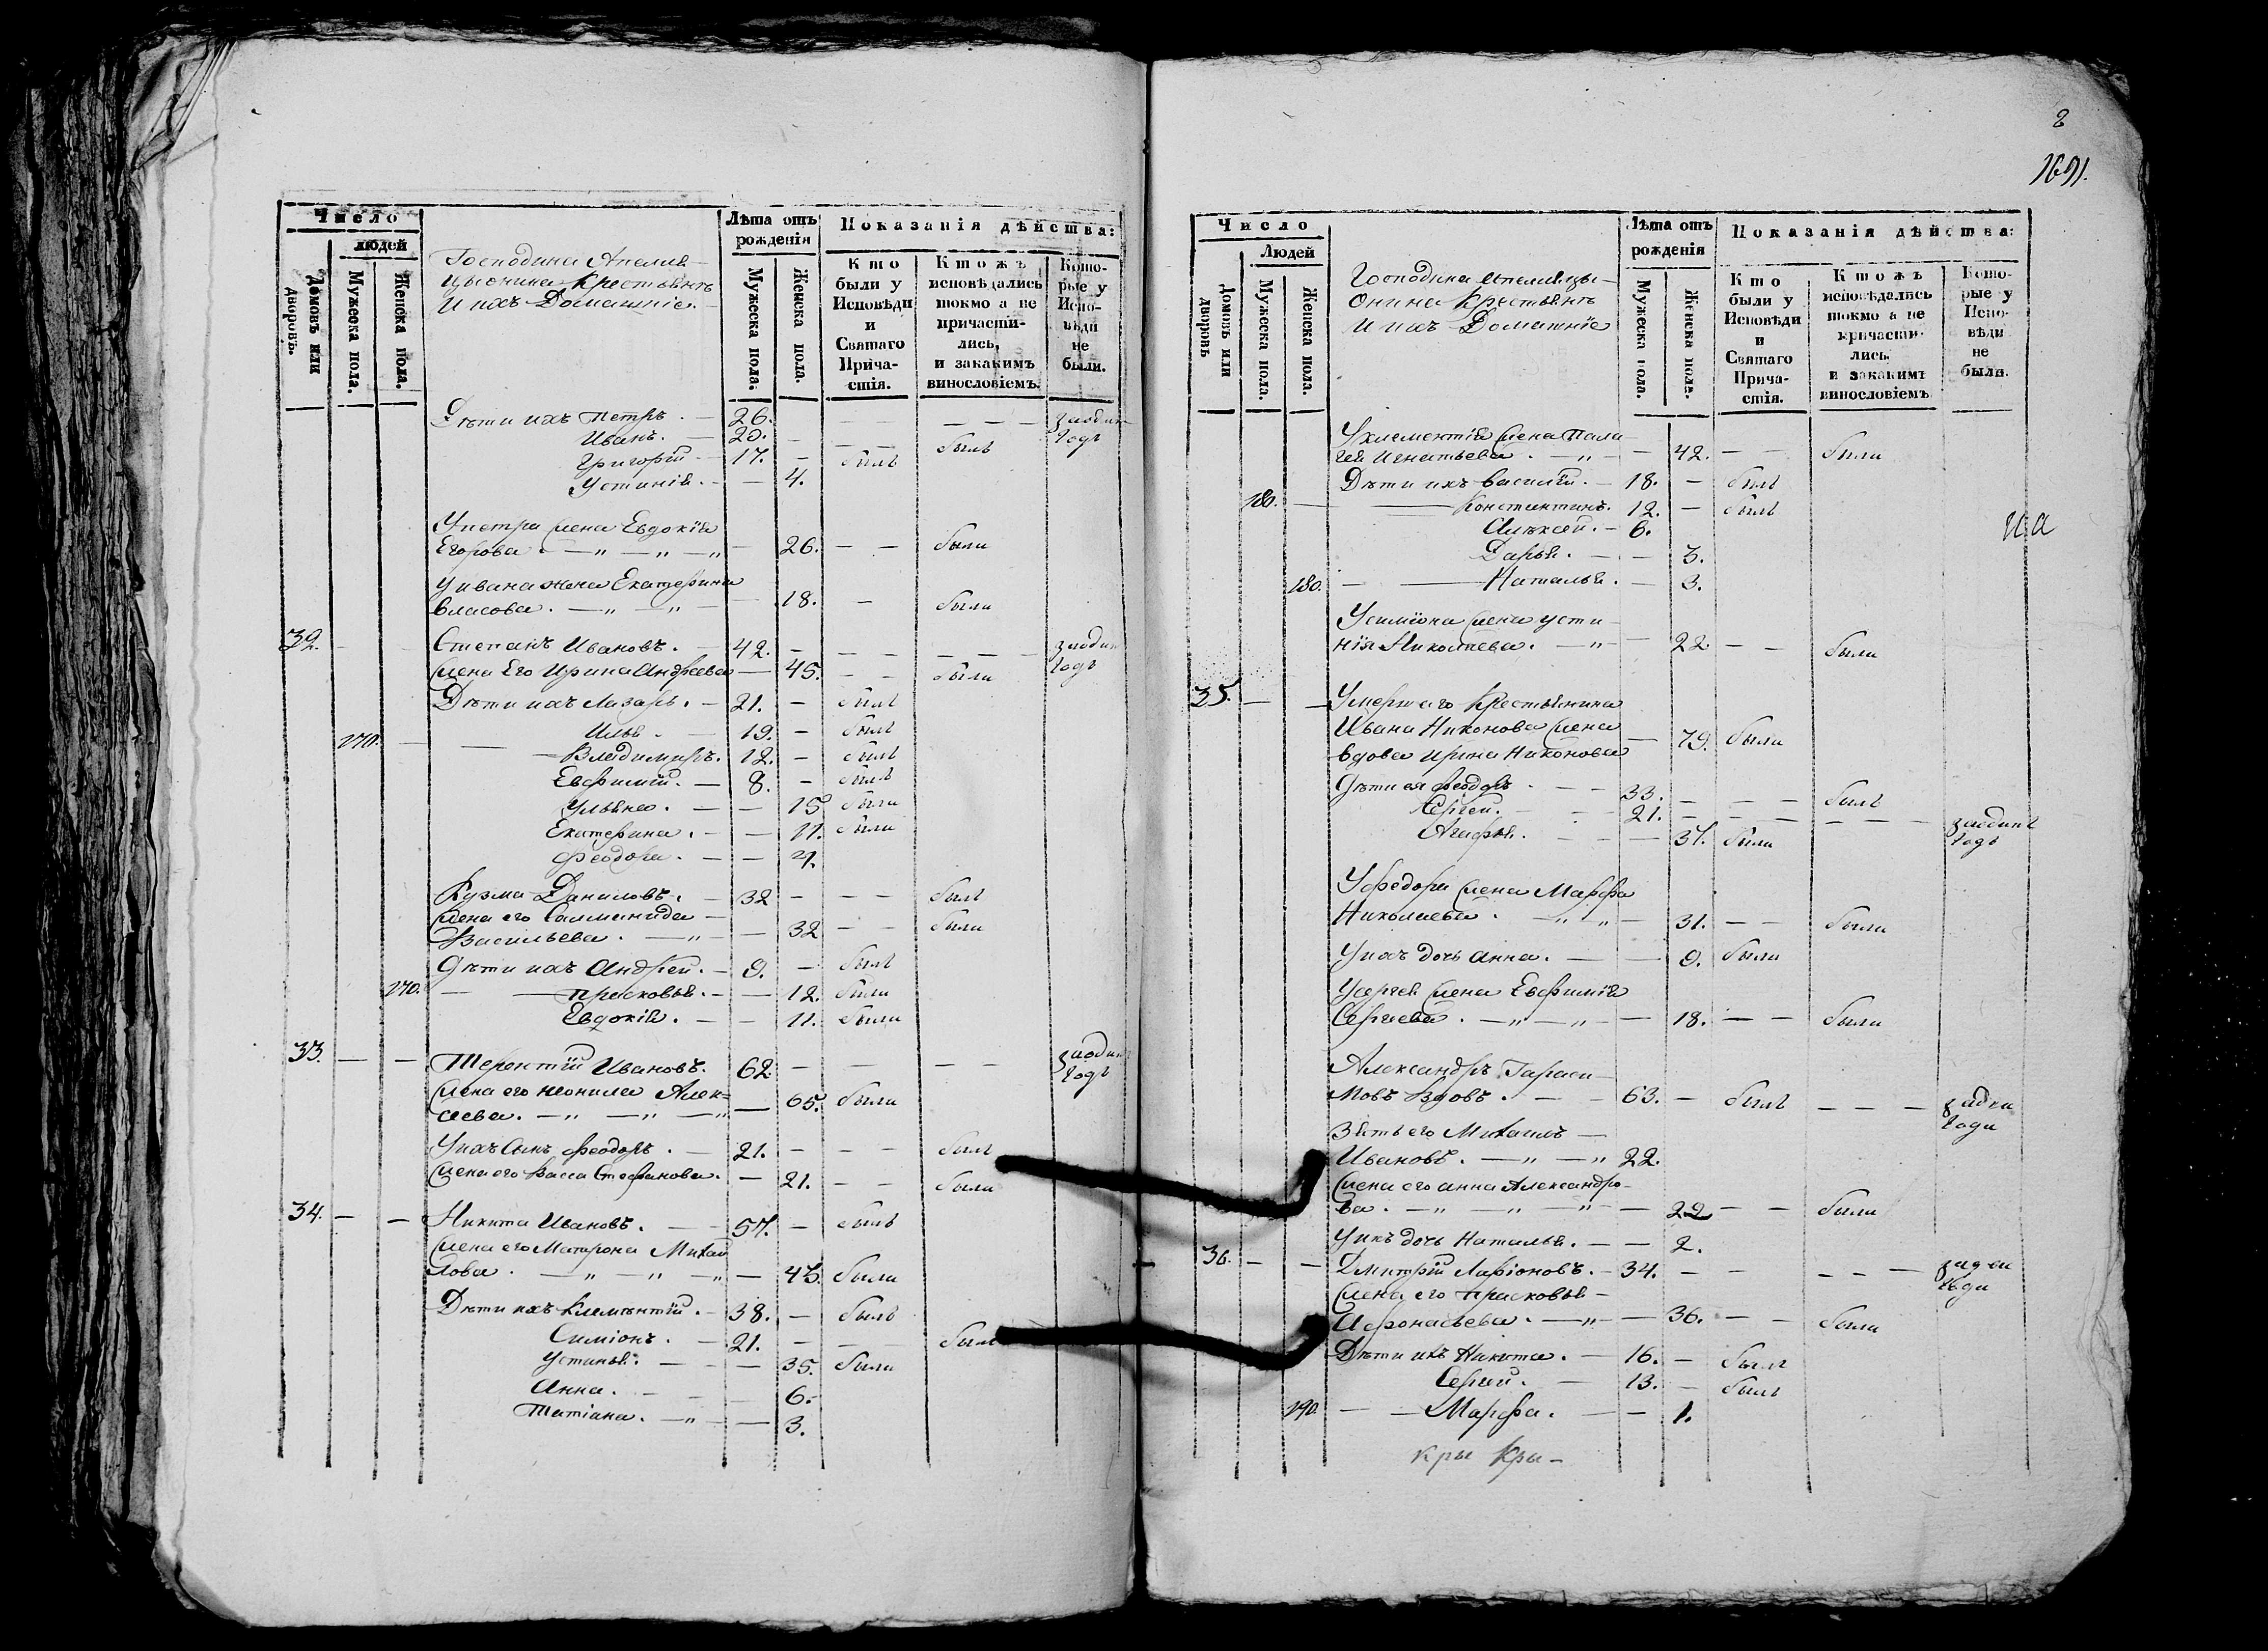 Число
людей
Домовъ или дворовъ.
Мужеска пола.
Женска пола.
Господина Апелия
цыонина крестьянъ
И ихъ Домашнiе.
Лѣта отъ рожденiя
Мужеска пола.
Женска пола.
Показанiя дѣйства:
Кто были у Исповѣди и Святаго Причастiя.
Ктожъ исповѣдались токмо а не причастились, и закакимъ винословiемъ.
Которые у Исповѣди не были.
Дѣти ихъ Петръ. — 26. — — — — заодин
Иванъ. — 20. — — — былъ годъ
Григорiй — 17. — былъ
Устинiя. — — 4.
У петра жена Евдокiя
Егорова. — „ — „ — „ — 26. — — была
У ивана жена Екатерина
власова. — „ — „ — 18. — была
32. — — Степанъ Ивановъ. 42. — — — — — заодин
Жена Его Ирина Андреева — 45. — — была годъ
Дѣти ихъ Лазарь. — 21. — былъ
Илья. — 19. — былъ
170. — — — Владимиръ. 12. — былъ
Евфимiй. — 8. — былъ
Ульяна. — — 15 была
Екатерина. — — 11. была
Феодора. — — 4.
Кузма Даниловъ. — 32 — — — былъ
Жена его Саламанида —
Васильева. — „ — — 32 — — была
Дѣти ихъ Андрей. — 9. — былъ
170. — — Прасковья. — — 12. была
Евдокiя. — — 11. была
33. — — Терентiй Ивановъ. 62 — — — — заодин
Жена его Неонила Алек= годъ
сѣева. — „ — „ — „ — 65. была
У ихъ сынъ Феодоръ. — 21. — — — былъ
Жена его Васса Стефанова. — 21. — — была
34. — — Никита Ивановъ. — 57. — былъ
Жена его Матрона Михаи
лова. — „ — „ — „ — 45 была
Дѣти ихъ Клементiй. — 38. — былъ
Симiонъ. — 21. — — — былъ
Устинья. — — — 35. была
Анна. — — 6.
Татiана. — „ — — 3.
2
1691.
Число
Людей
Домовъ или дворовъ
Мужеска пола.
Женска пола.
Господина Апелия цы-
Онина Крестьянъ
И ихъ Домашнiе
Лѣта отъ рожденiя
Мужеска пола.
Женска пола.
Показанiя дѣйства:
Кто были у Исповѣди и Святаго Причастiя.
Ктожъ исповѣдались токмо а не причастились. и закакимъ винословiемъ
Которые у Исповѣди не были.
У клементiя жена Пала
гея Игнатьева. — „ — — 42. — — была
Дѣти ихъ василiй. — 18. — былъ
180. — — Константинъ. 12. — былъ
Алѣксей. — 6.
Дарья. — — 3.
180. — — Наталья. — 3.
У симiона жена усти
нiя Николаева. — „ — — 22 — — была
35. — — Умершаго Крестьянина
Ивана Никонова жена
вдова Ирина Никонова — 79. была
Дѣти ея Феодоръ. — — 33. — — — былъ
Сергей. — — 21. — — — — — — заодинъ
Агафья. — — — 37. была годъ
У федора жена Марфа
Николаева. — „ — „ — 31. — — была
У ихъ дочь Анна. — — 9. была
У сергея жена Евфимiя
Сергиева. — „ — „ — — 18. — — была
Александръ Гараси—
мовъ Вдовъ. — — 63. — былъ — — —
Зять его Михаилъ — года
Ивановъ. — „ — „ 22.
Жена его анна Александро-
ва. — „ — „ — „ — — 22 — — была
У ихъ дочь Наталья. — — 2.
36. — — Дмитрiй Ларiоновъ. — 34. — — — — —
Жена его Прасковья — года
Афонасьева. — „ — — 36. — — была
Дѣти ихъ Никита. — 16. — былъ
Сергий. — 13. — былъ
190. — — Марфа. — — 1.